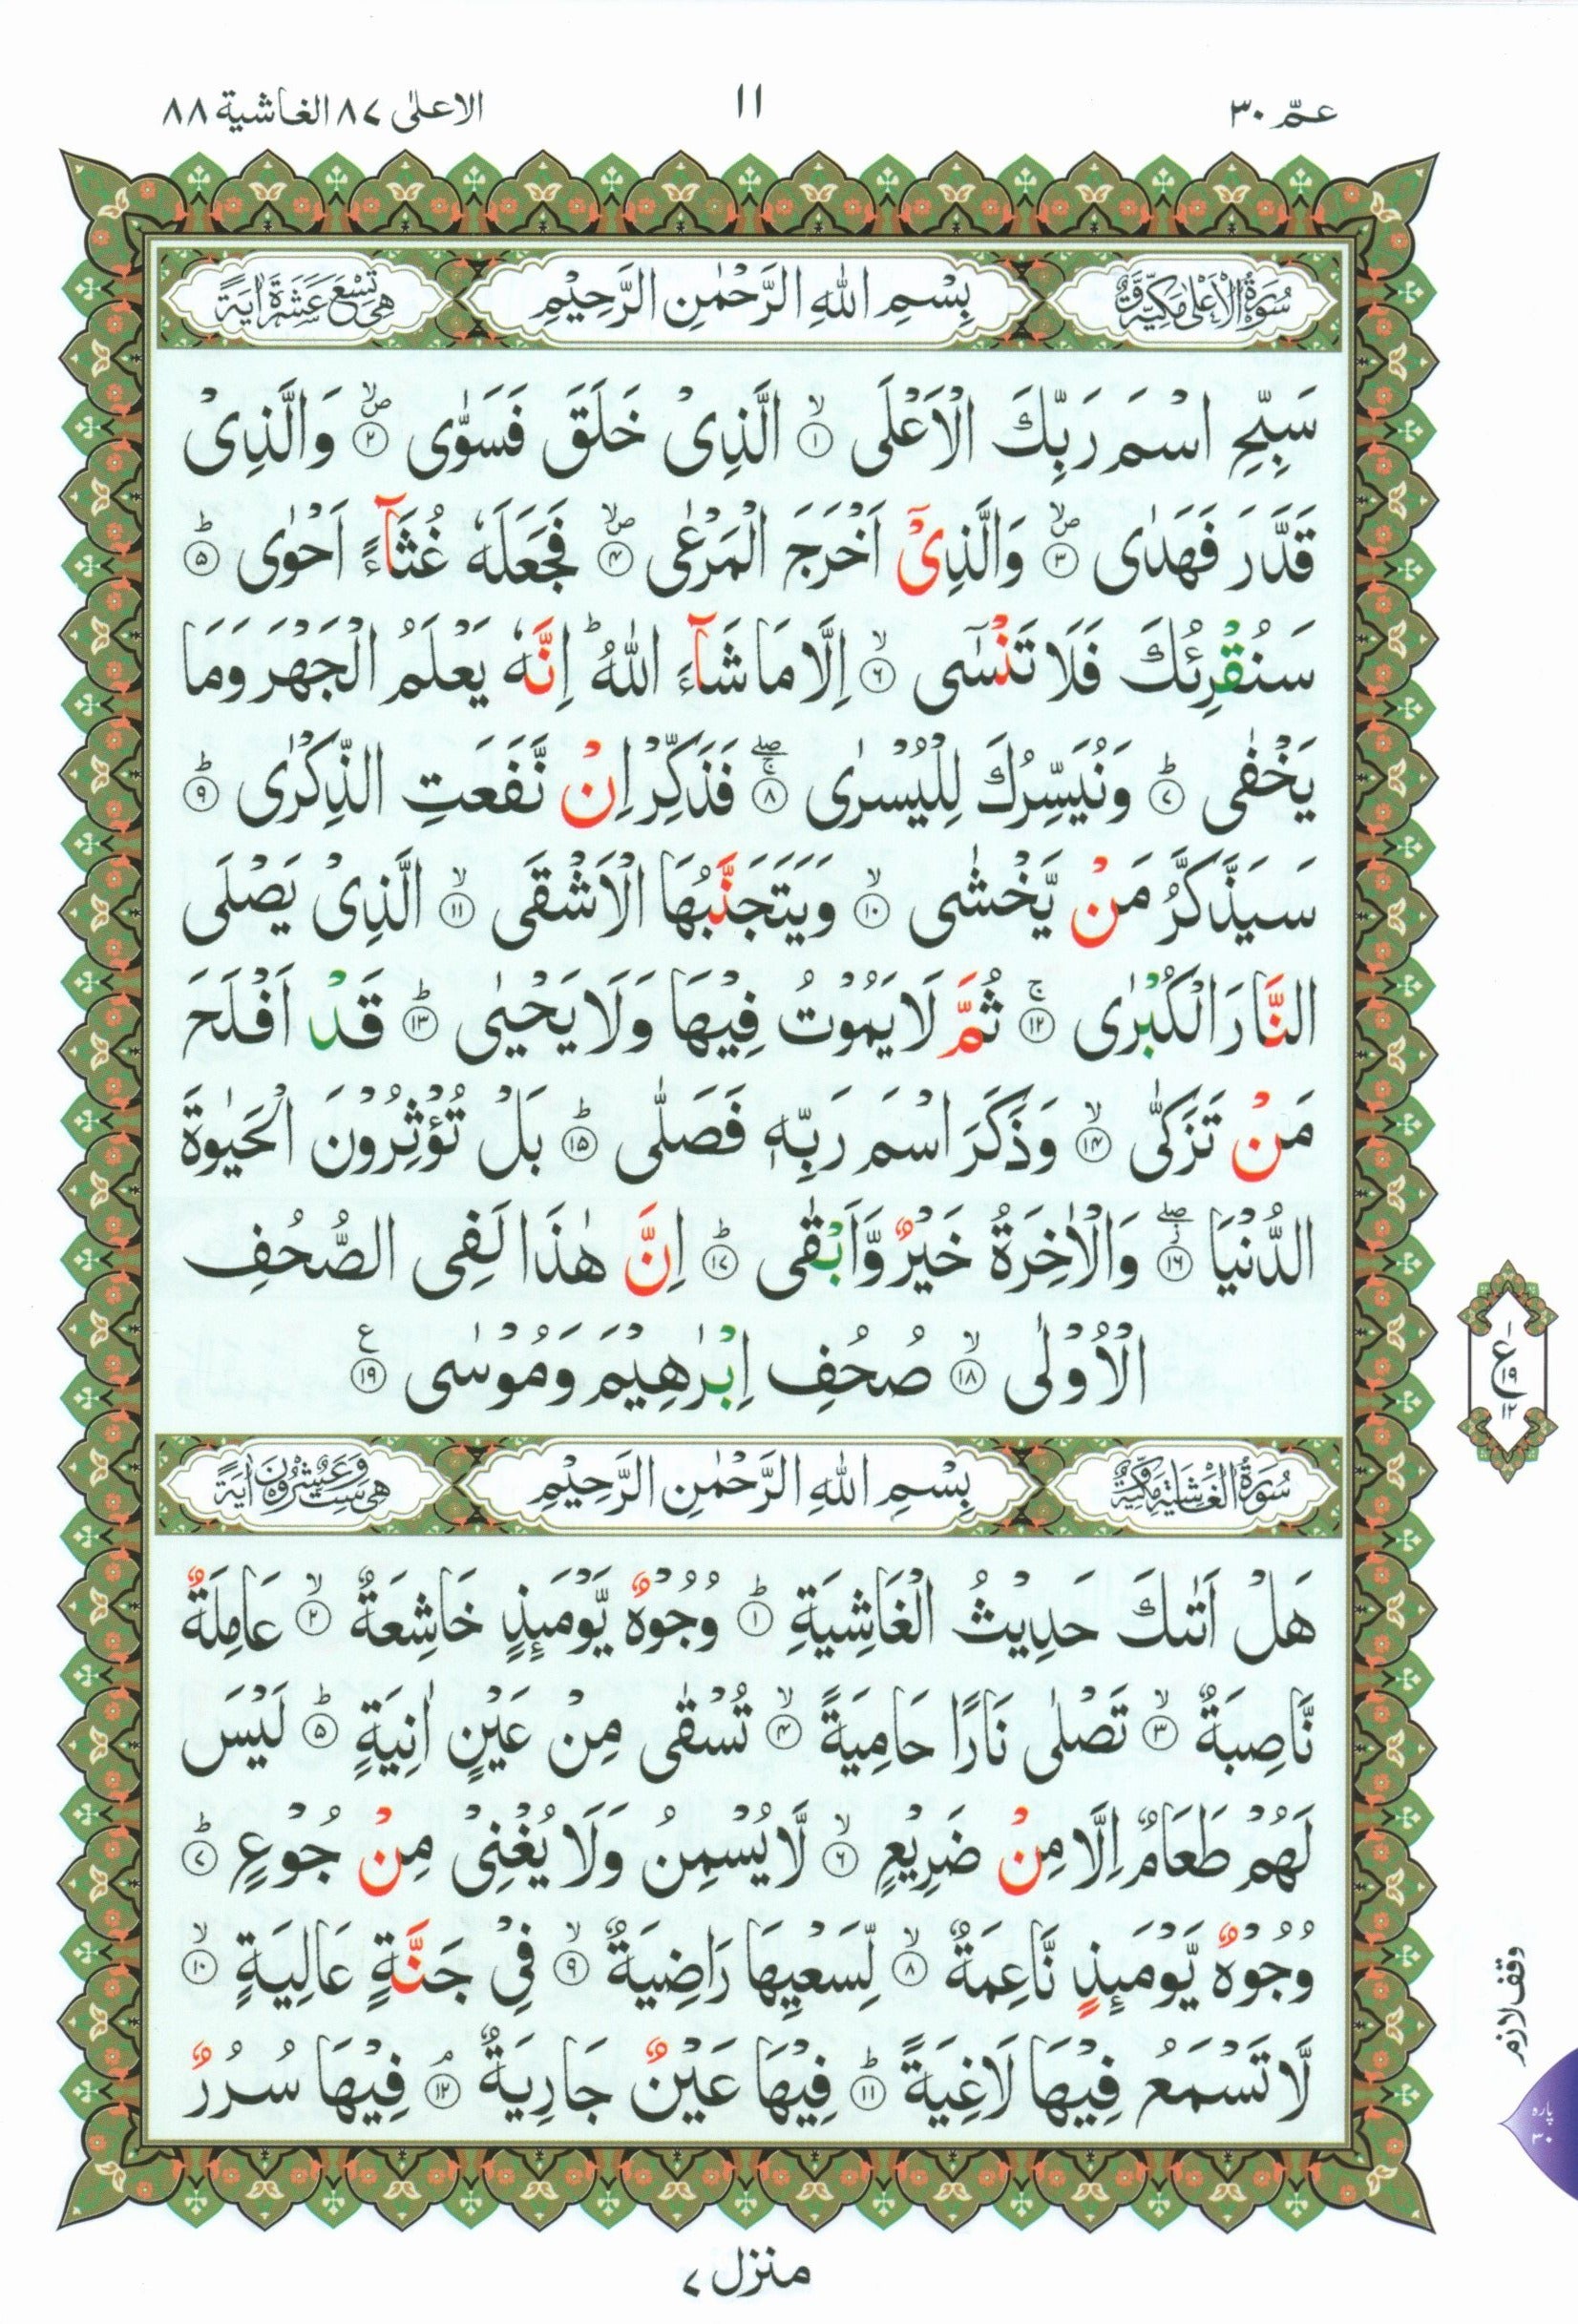 عمّ ٣٠
١١
الاعلى ٨٧ الغاشية ٨٨
سُوْرَةُ الْاَعْلٰى مَكِّيَّةٌ
بِسْمِ اللّٰهِ الرَّحْمٰنِ الرَّحِيْمِ
هِيَ تِسْعَ عَشَرَةَ اٰيَةً
سَبِّحِ اسْمَ رَبِّكَ الْاَعْلَى ۙ‏﴿١﴾ الَّذِىْ خَلَقَ فَسَوّٰى ۪ۙ‏﴿٢﴾ وَالَّذِىْ
قَدَّرَ فَهَدٰى ۪ۙ‏﴿٣﴾ وَالَّذِىْۤ اَخْرَجَ الْمَرْعٰى ۪ۙ‏﴿٤﴾ فَجَعَلَهٗ غُثَآءً اَحْوٰى ؕ‏﴿٥﴾
سَنُقْرِئُكَ فَلَا تَنْسٰٓى ۙ‏﴿٦﴾ اِلَّا مَا شَآءَ اللّٰهُ‌ؕ اِنَّهٗ يَعْلَمُ الْجَهْرَ وَمَا
يَخْفٰى ؕ‏﴿٧﴾ وَنُيَسِّرُكَ لِلْيُسْرٰى ‌ۖۚ‏﴿٨﴾ فَذَكِّرْ اِنْ نَّفَعَتِ الذِّكْرٰى ؕ‏﴿٩﴾
سَيَذَّكَّرُ مَنْ يَّخْشٰى ۙ‏﴿١٠﴾ وَيَتَجَنَّبُهَا الْاَشْقَى ۙ‏﴿١١﴾ الَّذِىْ يَصْلَى
النَّارَ الْكُبْرٰى‌ ۚ‏﴿١٢﴾ ثُمَّ لَا يَمُوْتُ فِيْهَا وَلَا يَحْيٰى ؕ‏﴿١٣﴾ قَدْ اَفْلَحَ
مَنْ تَزَكّٰى ۙ‏﴿١٤﴾ وَذَكَرَ اسْمَ رَبِّهٖ فَصَلّٰى‌ ؕ‏﴿١٥﴾ بَلْ تُؤْثِرُوْنَ الْحَيٰوةَ
الدُّنْيَا ۖ‏﴿١٦﴾ وَالْاٰخِرَةُ خَيْرٌ وَّاَبْقٰىؕ‏﴿١٧﴾ اِنَّ هٰذَا لَفِى الصُّحُفِ
الْاُوْلٰىۙ‏﴿١٨﴾ صُحُفِ اِبْرٰهِيْمَ وَمُوْسٰى‏﴿١٩﴾
ع
١٩
١٢
سُوْرَةُ الْغَاشِيَةِ مَكِّيَّةٌ
بِسْمِ اللّٰهِ الرَّحْمٰنِ الرَّحِيْمِ
وَهِيَ سِتٌّ وَّعِشْرُوْنَ اٰيَةً
هَلْ اَتٰٮكَ حَدِيْثُ الْغَاشِيَةِؕ‏﴿١﴾ وُجُوْهٌ يَّوْمَئِذٍ خَاشِعَةٌ ۙ‏﴿٢﴾ عَامِلَةٌ
نَّاصِبَةٌ ۙ‏﴿٣﴾ تَصْلٰى نَارًا حَامِيَةً ۙ‏﴿٤﴾ تُسْقٰى مِنْ عَيْنٍ اٰنِيَةٍؕ‏﴿٥﴾ لَيْسَ
لَهُمْ طَعَامٌ اِلَّا مِنْ ضَرِيْعٍۙ‏﴿٦﴾ لَّا يُسْمِنُ وَلَا يُغْنِىْ مِنْ جُوْعٍؕ‏﴿٧﴾
وُجُوْهٌ يَّوْمَئِذٍ نَّاعِمَةٌ ۙ‏﴿٨﴾ لِّسَعْيِهَا رَاضِيَةٌ ۙ‏﴿٩﴾ فِىْ جَنَّةٍ عَالِيَةٍۙ‏﴿١٠﴾
لَّا تَسْمَعُ فِيْهَا لَاغِيَةً ؕ‏﴿١١﴾ فِيْهَا عَيْنٌ جَارِيَةٌ‌ ۘ‏﴿١٢﴾ فِيْهَا سُرُرٌ
وقف لازم
پارہ
٣٠
منزل ٧